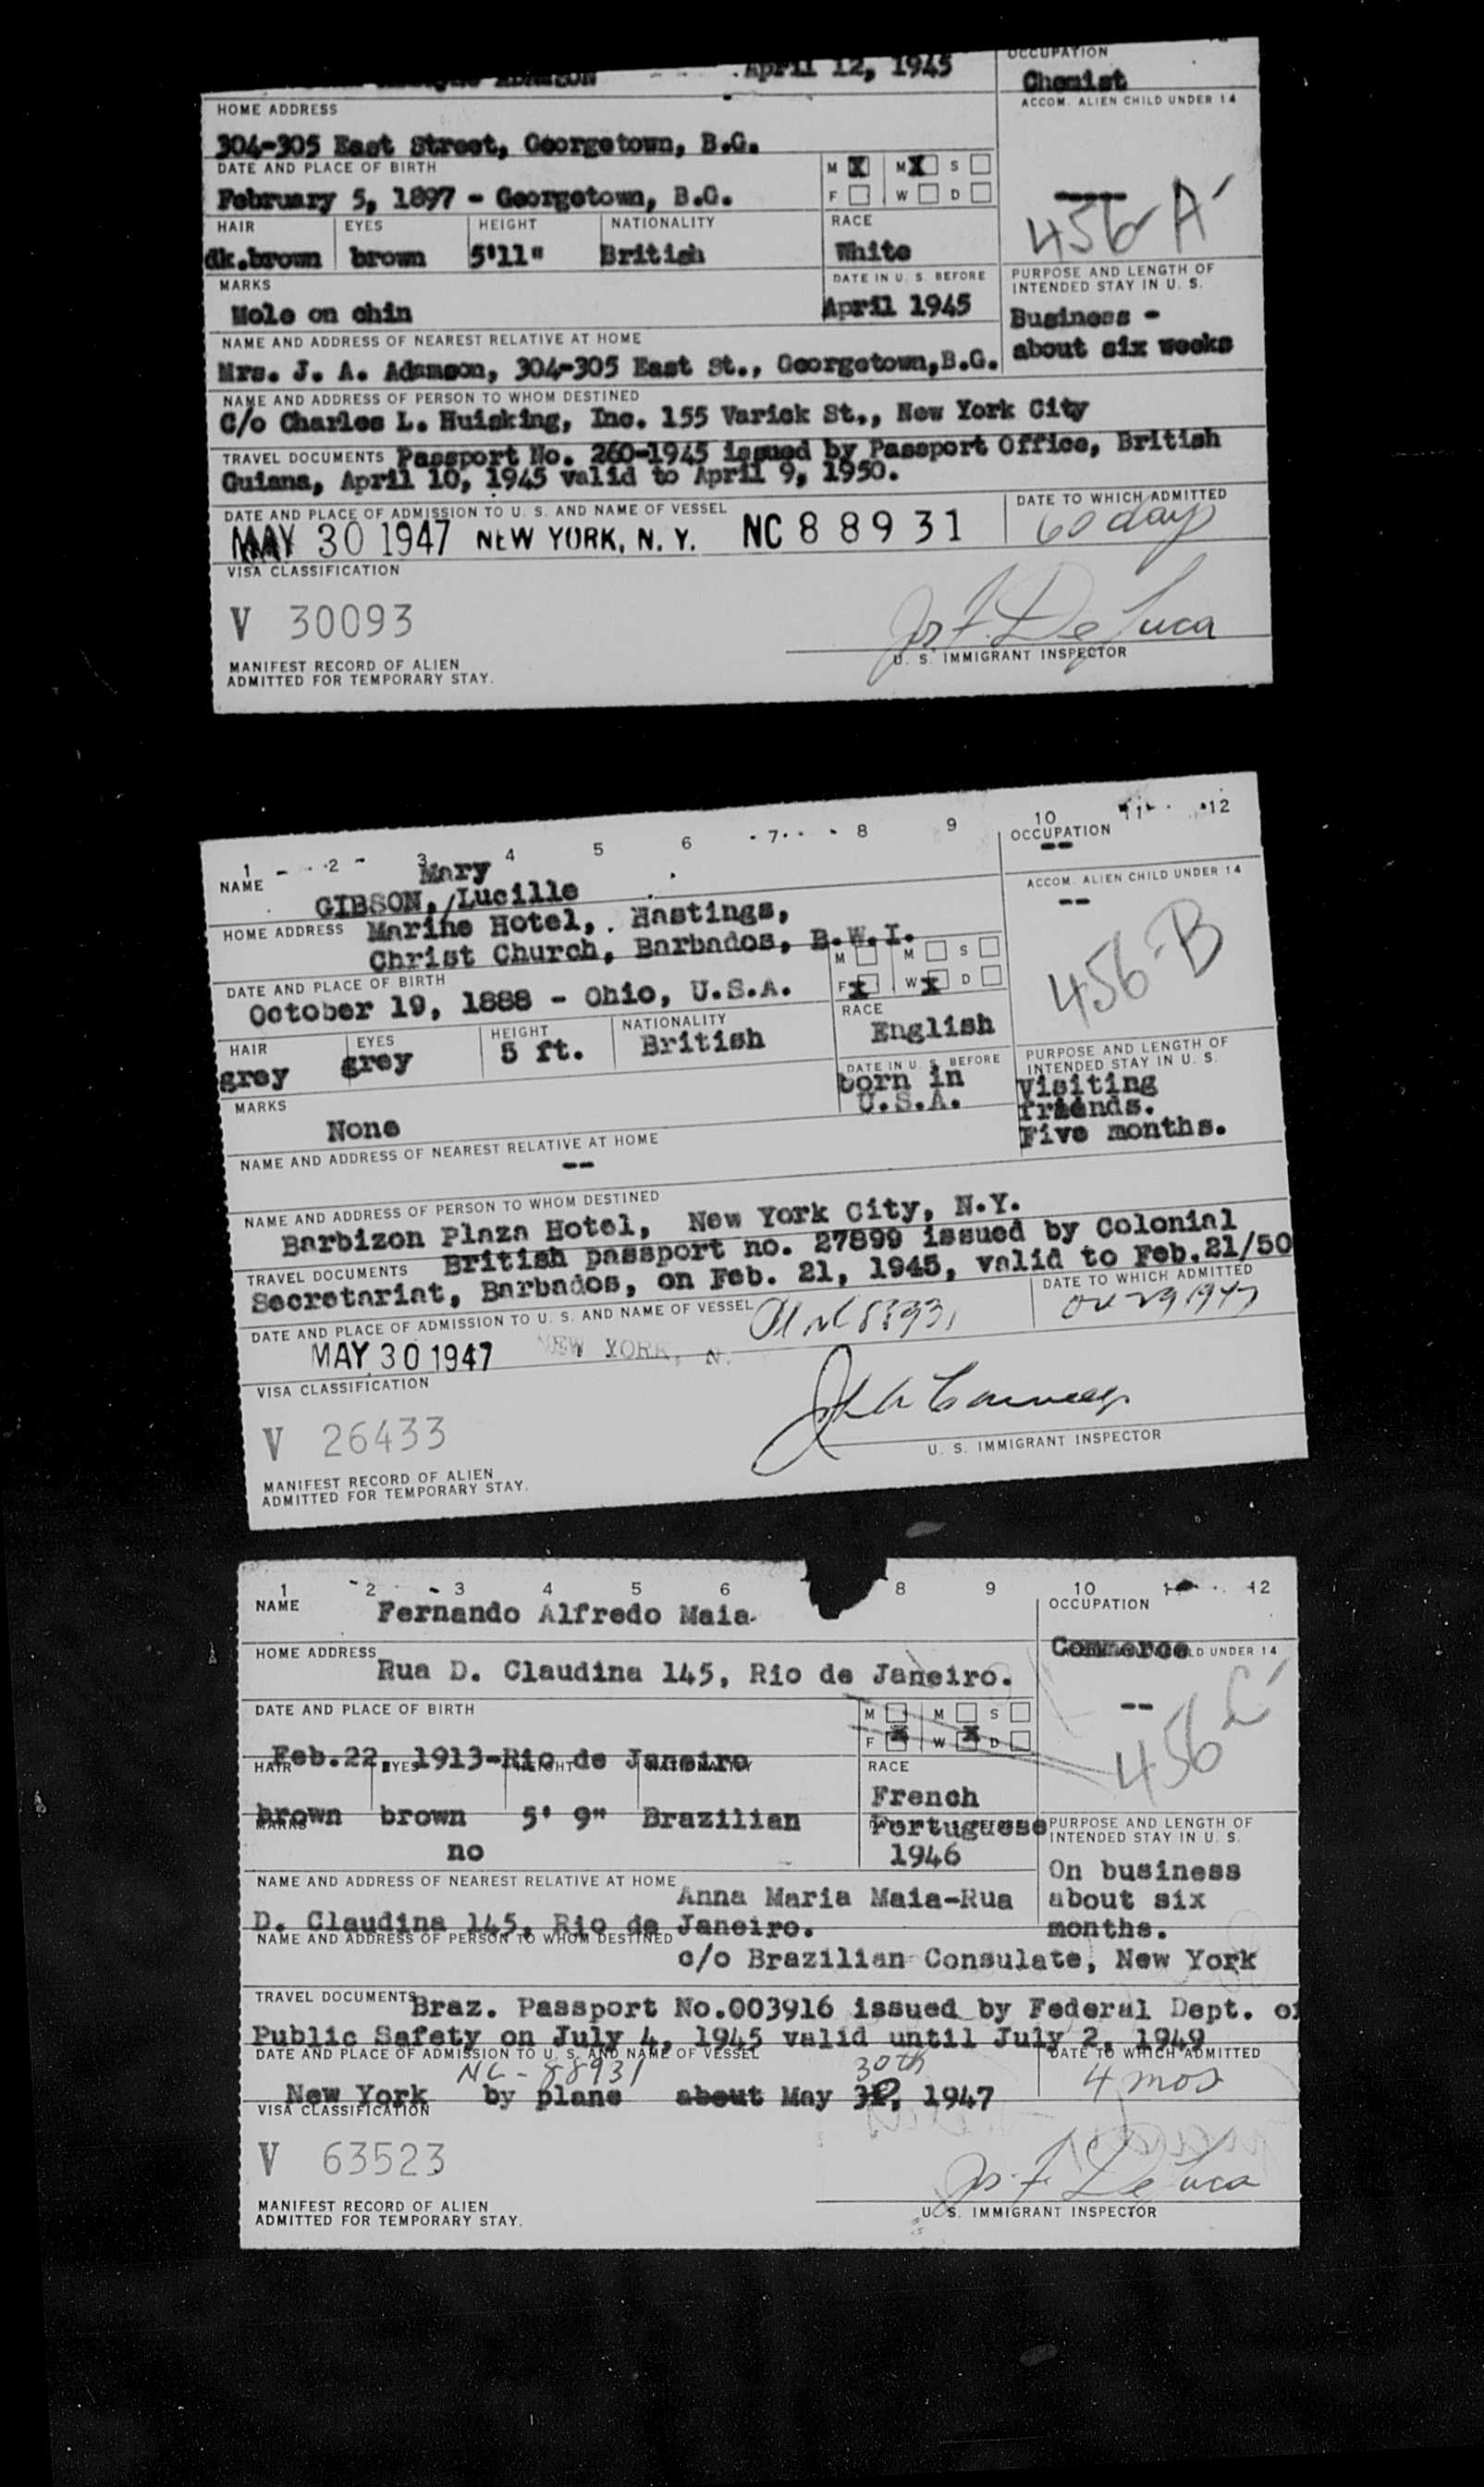 ADAMSON April 12, 1945
OCCUPATION
Chemist
ACCOM. ALIEN CHILD UNDER 14
HOME ADDRESS
304-305 East Street, Georgetown, B.G.
DATE AND PLACE OF BIRTH
M X M X S
February 5, 1897 - Georgetown, B.G.
F W D
----
456-A
HAIR EYES HEIGHT NATIONALITY RACE
dk.brown brown 5'11" British White
MARKS DATE IN U. S. BEFORE
Mole on chin April 1945
PURPOSE AND LENGTH OF
INTENDED STAY IN U. S.
Business -
about six weeks
NAME AND ADDRESS OF NEAREST RELATIVE AT HOME
Mrs. J. A. Adamson, 304-305 East St., Georgetown,B.G.
NAME AND ADDRESS OF PERSON TO WHOM DESTINED
C/o Charles L. Huisking, Inc. 155 Varick St., New York City
TRAVEL DOCUMENTS Passport No. 260-1945 issued by Passport Office, British
Guiana, April 10, 1945 valid to April 9, 1950.
DATE AND PLACE OF ADMISSION TO U. S. AND NAME OF VESSEL DATE TO WHICH ADMITTED
MAY 30 1947 NEW YORK, N. Y. NC 88931 60 days
VISA CLASSIFICATION
V 30093
Jos. F. De Luca
U. S. IMMIGRANT INSPECTOR
MANIFEST RECORD OF ALIEN
ADMITTED FOR TEMPORARY STAY.
1 2 3 4 5 6 7 8 9 10 11 12
NAME Mary
GIBSON,/Lucille
OCCUPATION
--
ACCOM. ALIEN CHILD UNDER 14
--
HOME ADDRESS Marine Hotel, Hastings,
Christ Church, Barbados, B.W.I.
456-B
DATE AND PLACE OF BIRTH
M M S
October 19, 1888 - Ohio, U.S.A.
F X W X D
HAIR EYES HEIGHT NATIONALITY RACE
grey grey 5 ft. British English
MARKS DATE IN U. S. BEFORE
None born in
U.S.A.
PURPOSE AND LENGTH OF
INTENDED STAY IN U. S.
Visiting
friends.
Five months.
NAME AND ADDRESS OF NEAREST RELATIVE AT HOME
--
NAME AND ADDRESS OF PERSON TO WHOM DESTINED
Barbizon Plaza Hotel, New York City, N.Y.
TRAVEL DOCUMENTS British passport no. 27899 issued by Colonial
Secretariat, Barbados, on Feb. 21, 1945, valid to Feb.21/50
DATE AND PLACE OF ADMISSION TO U. S. AND NAME OF VESSEL DATE TO WHICH ADMITTED
MAY 30 1947 NEW YORK, N. NC 88931 Oct 29 1947
VISA CLASSIFICATION
V 26433
U. S. IMMIGRANT INSPECTOR
MANIFEST RECORD OF ALIEN
ADMITTED FOR TEMPORARY STAY.
1 2 3 4 5 6 8 9 10 12
NAME Fernando Alfredo Maia
OCCUPATION
Commerce
LD UNDER 14
--
456 C
HOME ADDRESS
Rua D. Claudina 145, Rio de Janeiro.
DATE AND PLACE OF BIRTH
M M S
F X W X D
Feb.22, 1913-Rio de Janeiro
HAIR EYES HEIGHT NATIONALITY RACE
brown brown 5' 9" Brazilian French
Portuguese
MARKS
no 1946
PURPOSE AND LENGTH OF
INTENDED STAY IN U. S.
On business
about six
months.
NAME AND ADDRESS OF NEAREST RELATIVE AT HOME
Anna Maria Maia-Rua
D. Claudina 145, Rio de Janeiro.
NAME AND ADDRESS OF PERSON TO WHOM DESTINED
c/o Brazilian Consulate, New York
TRAVEL DOCUMENTS
Braz. Passport No.003916 issued by Federal Dept. of
Public Safety on July 4, 1945 valid until July 2, 1949
DATE AND PLACE OF ADMISSION TO U. S. AND NAME OF VESSEL DATE TO WHICH ADMITTED
NC-88931 30th 4 mos
New York by plane about May 31, 1947
VISA CLASSIFICATION
V 63523
Jos. F. De Luca
U. S. IMMIGRANT INSPECTOR
MANIFEST RECORD OF ALIEN
ADMITTED FOR TEMPORARY STAY.